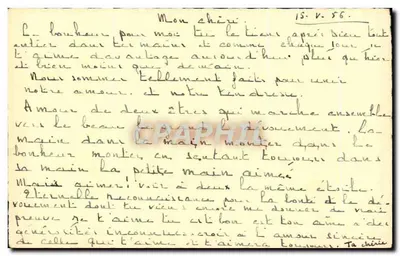 Mon chéri. 15.V.56.
Le bonheur pour moi tu le tiens après Dieu tout
entier dans tes mains et comme chaque jour je
t'aime davantage aujourd'hui plus qu'hier
et bien moins que demain.
Nous sommes tellement faits pour unir
notre amour et notre tendresse.
Amour de deux êtres qui marche ensemble
vers le beau le dévouement. La
main dans la main monter dans le
bonheur monter en sentant toujours dans
sa main la petite main aimée
Mais aimer! voir à deux la même étoile.
Eternelle reconnaissance pour la bonté le dé-
vouement dont tu viens encore me donner la vraie
preuve je t'aime tu est bon est ton âme a des
générosités inconnues crois à l'amour sincère
de celle qui t'aime et t'aimera toujours. Ta chérie
PHILAPHIL